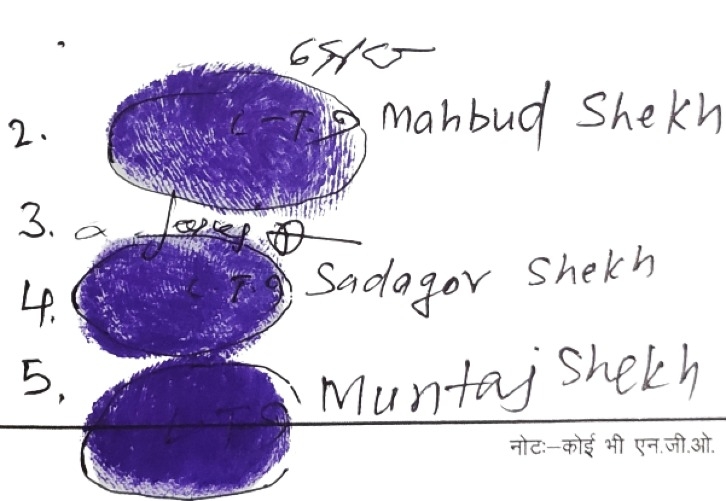 2. L-T.9 Mahbud Shekh
3.
4. L T.9 Sadagor Shekh
5. L T 9 Muntaj Shekh
नोटः–कोई भी एन.जी.ओ.